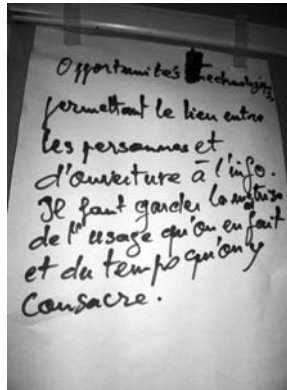 Opportunités technologiques,
permettant le lien entre
les personnes et
d'ouverture à l'info.
Il faut garder la maîtrise
de l'usage qu'on en fait
et du temps qu'on y
consacre.